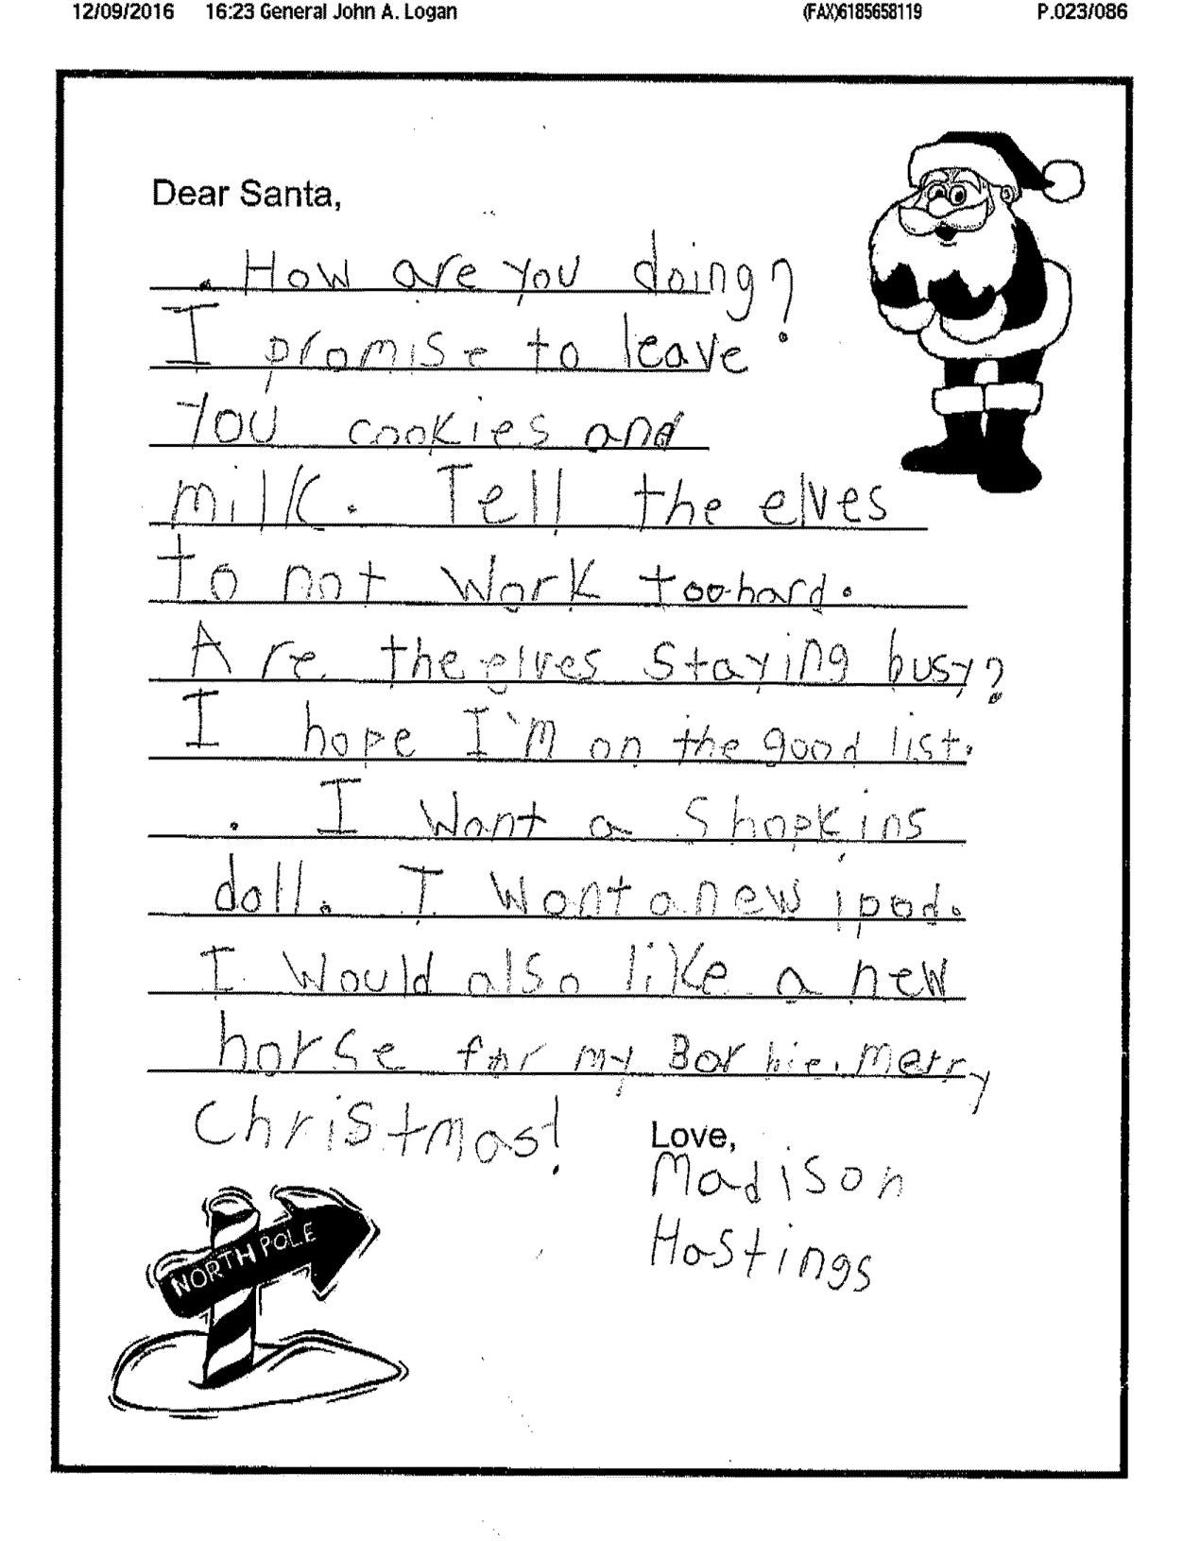 12/09/2016 16:23 General John A. Logan (FAX)6185658119 P.023/086
Dear Santa,
. How are you doing?
I promise to leave
You cookies and
milk. Tell the elves
to not work too hard.
Are the elves staying busy?
I hope I'm on the good list.
. I want a Shopkins
doll. I want a new ipod.
I would also like a new
horse for my Barbie. Merry
Christmas!
Love,
Madison
Hastings
NORTH POLE